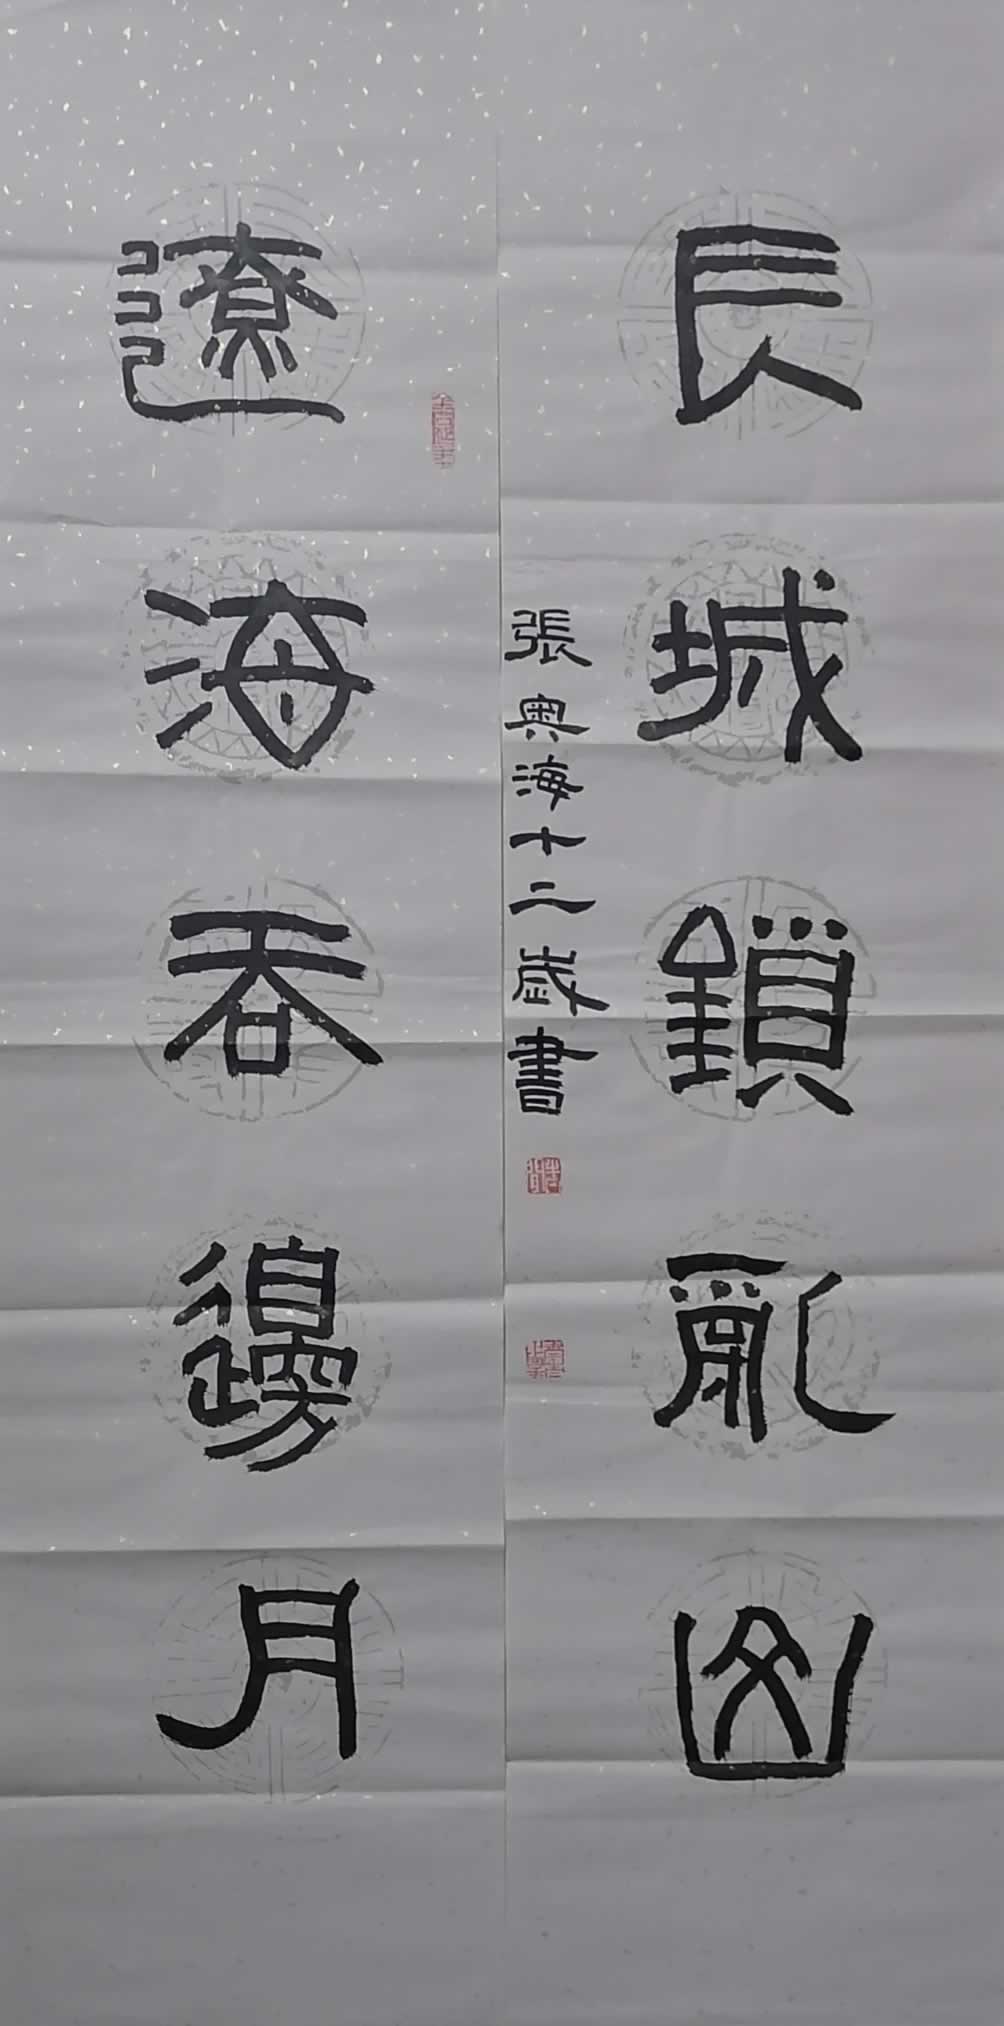 長城鎖亂山
張奧海十二歲書
遼海吞邊月